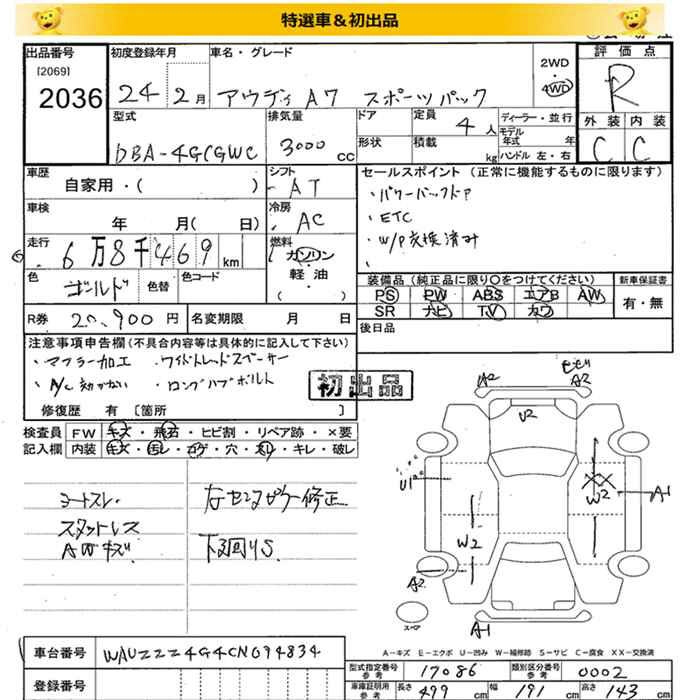 特選車&初出品
出品番号 初度登録年月 車名・グレード 評価点
[2069]
2036 24 2月 アウディ A7 スポーツバック 2WD 4WD R
型式 排気量 ドア 定員 4人 ディーラー・並行 外装 内装
モデル年式 年
DBA-4GCGWC 3000cc 形状 積載 kg ハンドル 左・右 C C
車歴 シフト セールスポイント(正常に機能するものに限ります)
自家用・( ) ・AT ・パワーバックドア
車検 冷房 ・ETC
年 月( 日) ・AC ・W/P交換済み
走行 6万8千469km 燃料 ガソリン
軽・油
( )
色 ゴールド 色替 色コード 装備品(純正品に限り〇をつけてください) 新車保証書
PS PW ABS エアB AW 有・無
SR ナビ TV カワ
R券 20,900円 名変期限 月 日 後日品
注意事項申告欄(不具合内容等は具体的に記入して下さい)
・マフラー加工 ・ワイドトレッドスペーサー
・A/C効かない ・ロングハブボルト
初出品
修復歴 有〔箇所 〕
検査員 FW キズ・飛石・ヒビ割・リペア跡・×要
記入欄 内装 キズ・汚レ・コゲ・穴・スレ・キレ・破レ
シートスレ
スタットレス
AWキズ
下回りS
A2 A2
U2
U1 W2 A1
W2
A2
A1
スペア
A-キズ E-エクボ U-凹み W-補修跡 S-サビ C-腐食 XX-交換済
車台番号 WAUZZZ4G4CN094834
型式指定番号 参考 17086 類別区分番号 参考 0002
登録番号
車庫証明用 参考 長さ 499cm 幅 191cm 高さ 143cm